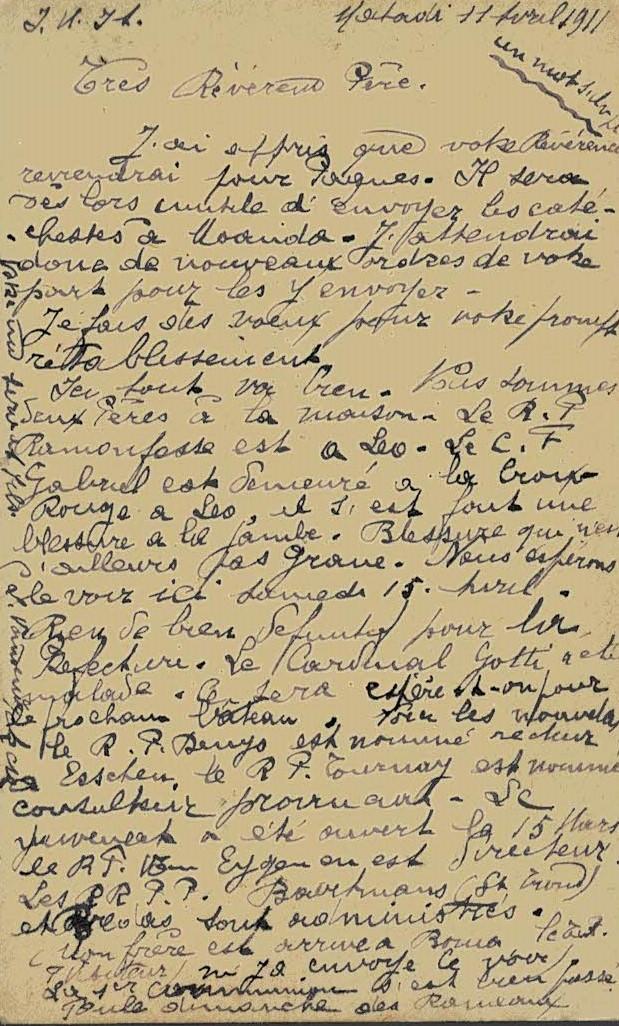 J. M. Jt.
Matadi 11 Avril 1911
un mot s.v.p.
Très Révérend Père.
J'ai appris que votre Révérence
reviendrai pour Pâques. Il sera
dès lors inutile d'envoyer les caté-
chistes à Moanda. J'attendrai
donc de nouveaux ordres de votre
part pour les y envoyer -
Je fais des vœux pour votre prompt
rétablissement
Ici tout va bien. Nous sommes
deux Pères à la maison. Le R. P
est a Leo. Le C. F
Gabriel est demeuré a la Croix
Rouge a Leo, il s'est fait une
blessure a la jambe. Blessure qui n'est
d'ailleurs pas grave. Nous espérons
le voir ici samedi 15. Avril.
Rien de bien définitif pour la
Préfecture. Le Cardinal Gotti a été
malade. Ce sera espère-t-on pour
le prochain bateau. Voici les nouvelles
le R. P. Denys est nommé recteur
Esschen, le R P. Tournay est nommé
consulteur provincial - Le
juvenat a été ouvert le 15 Mars
le R P. Van Eygen en est directeur.
Les RR. P.P. Baertmans (St Trond)
et sont administrés.
(Mon frère est arrivé a Boma
je l'ai envoyé le voir)
La 1er communion s'est bien passé
dimanche des Rameaux